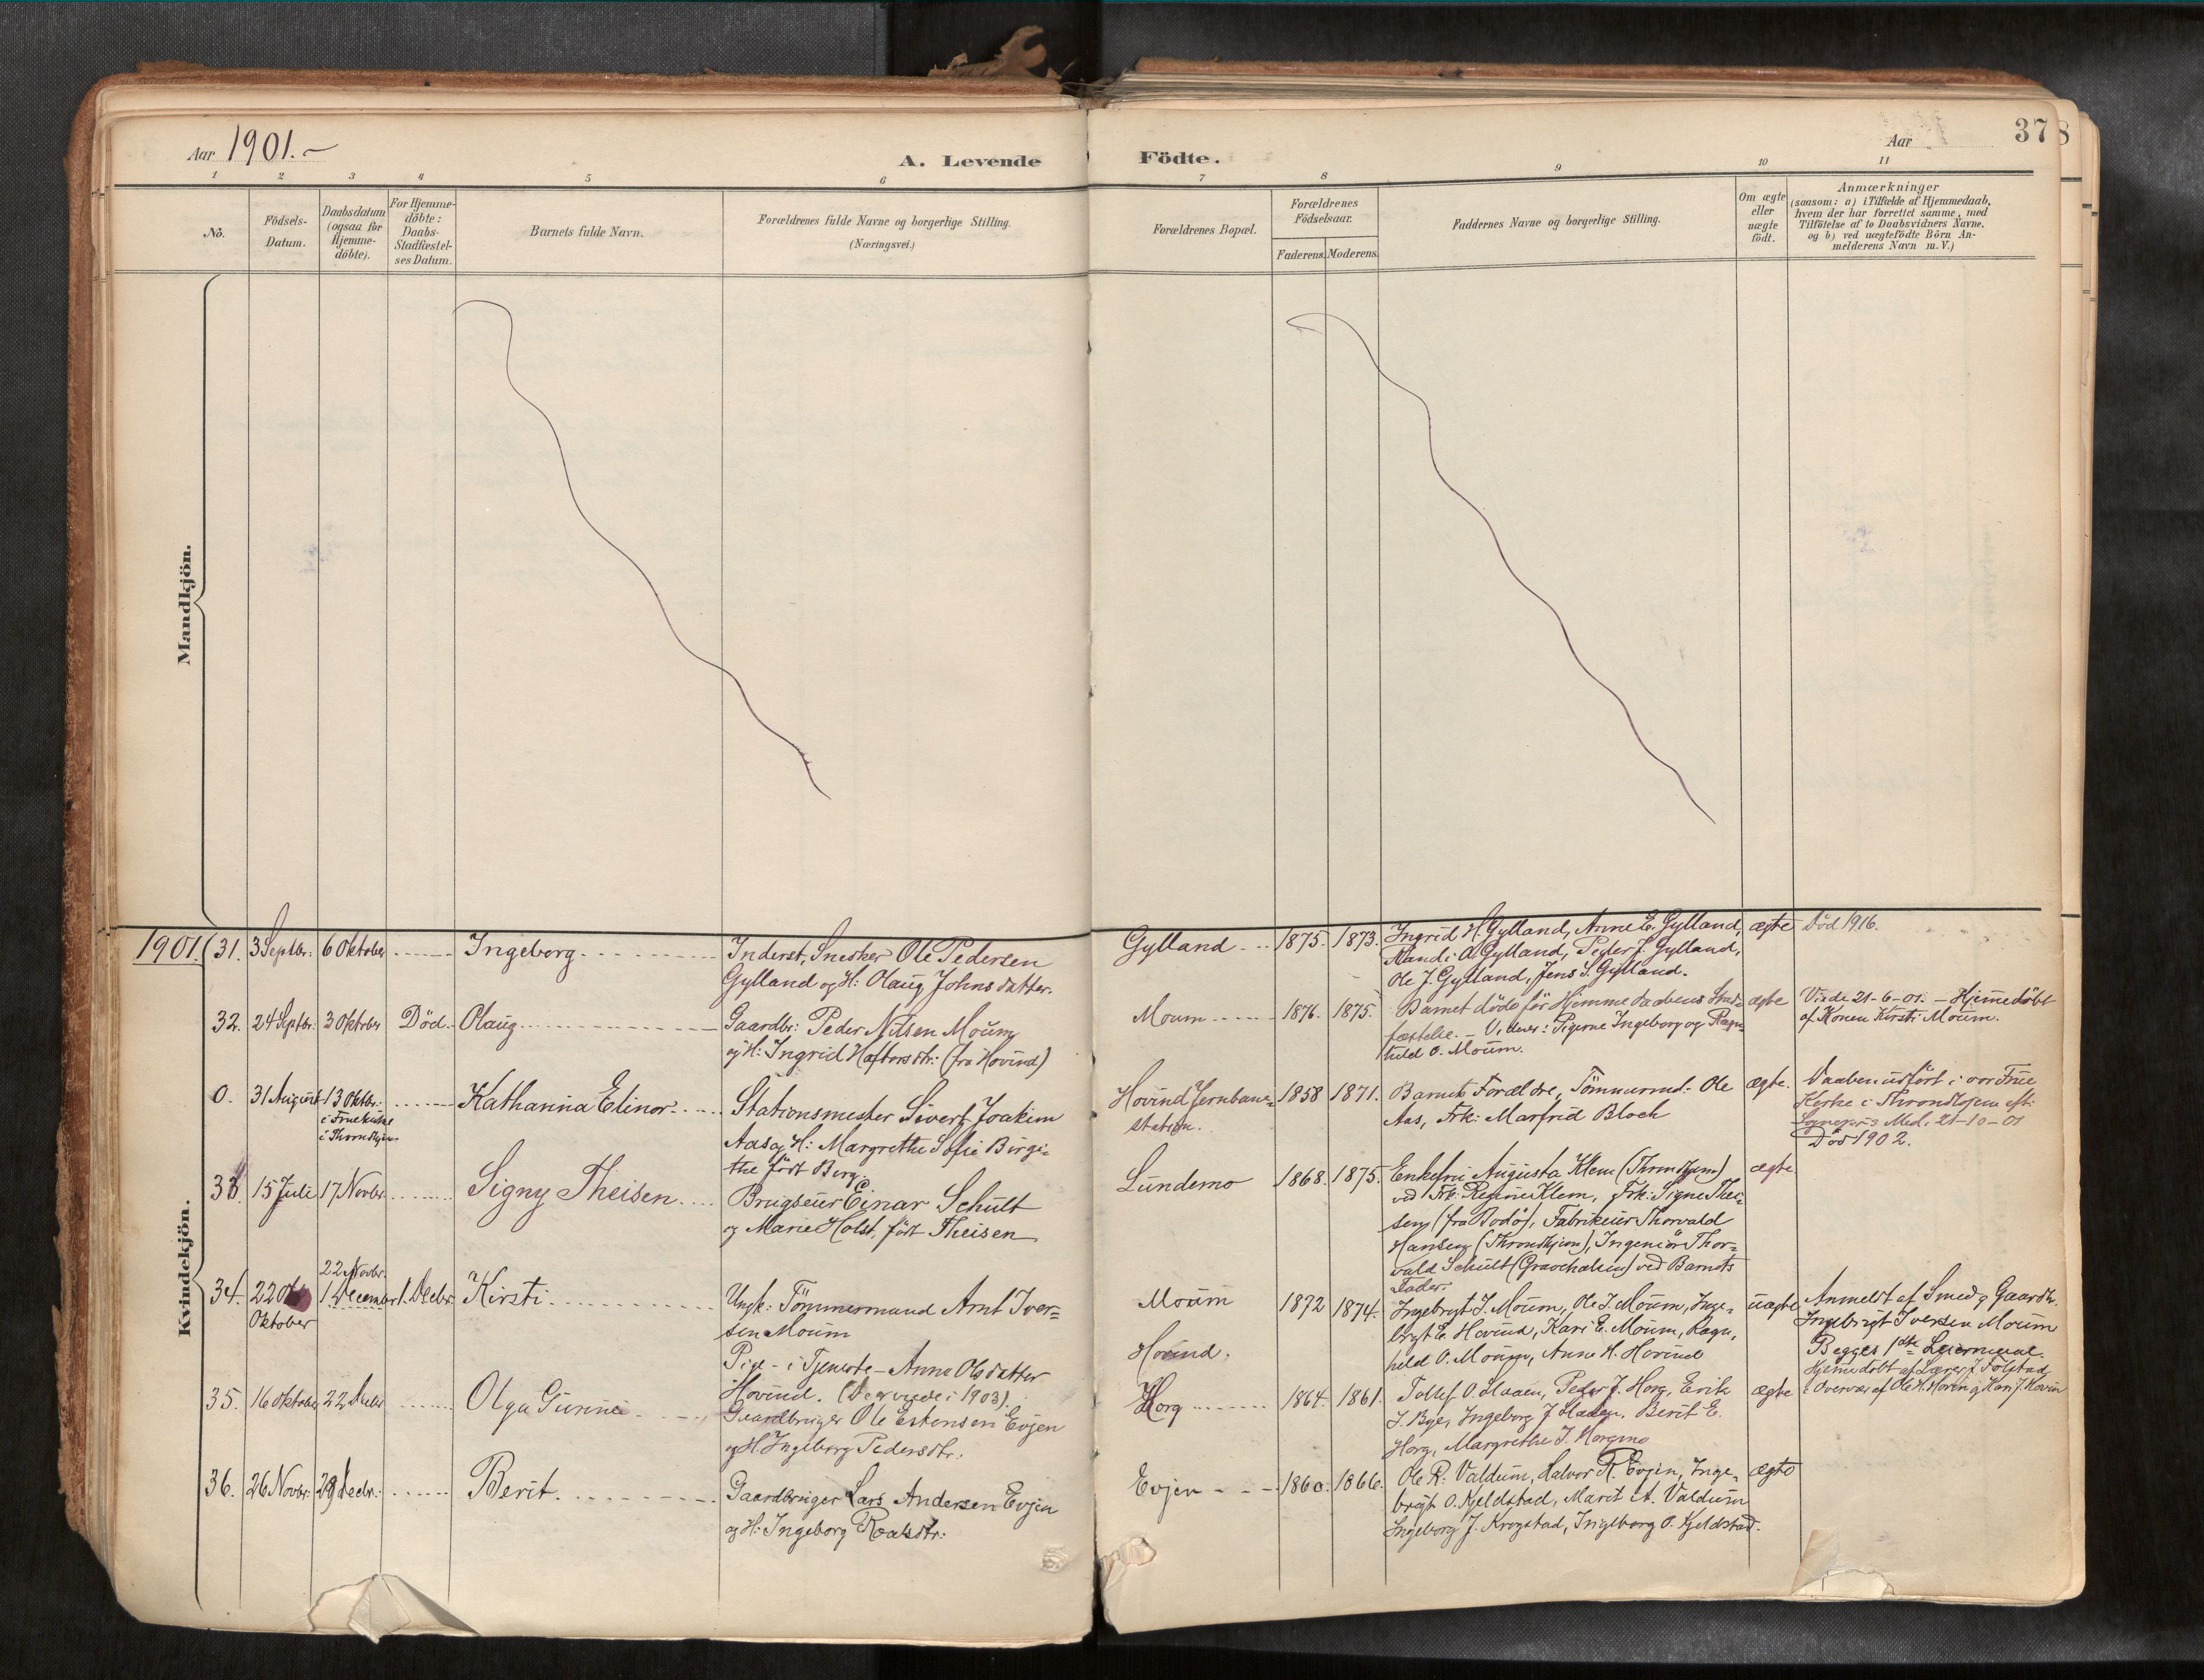 Aar 1901.
A. Levende
Födte.
Aar
37
8
1 2 3 4 5 6 7 8 9 10 11
No.
Födsels-
Datum.
Daabsdatum
(ogsaa for
Hjemme-
döbte).
For Hjemme-
döbte:
Daabs-
Stadfæstel-
ses Datum.
Barnets fulde Navn.
Forældrenes fulde Navne og borgerlige Stilling.
(Næringsvei.)
Forældrenes Bopæl.
Forældrenes
Födselsaar.
Faderens.
Moderens.
Faddernes Navne og borgerlige Stilling.
Om ægte
eller
uægte
födt.
Anmærkninger
(saasom: a) i Tilfælde af Hjemmedaab,
hvem der har forrettet samme, med
Tilföielse af to Daabsvidners Navne,
og b) ved uægtefödte Börn An-
melderens Navn m. V.)
Mandkjön.
Kvindekjön.
1901.
31. 3 Septbr. 6 Oktober Ingeborg.
Inderst, Snedker Ole Pedersen
Gylland og H: Olaug Johnsdatter.
Gylland 1875. 1873.
Ingrid H. Gylland, Anne E. Gylland,
Randi O. Gylland, Peder J. Gylland,
Ole J. Gylland, Jens S. Gylland.
ægte
Död 1916.
32. 24 Septbr. 3 Oktober Död. Olaug
Gaardbr: Peder Nilsen Moum
og H: Ingrid Haftorsdtr: (fra Hovind)
Moum 1876. 1875.
Barnet döde för Hjemmedaabens Stad-
fæstelse. - Vidner: Pigerne Ingeborg og Ragn-
hild O. Moum.
ægte
Viede 21-6-01. - Hjemmedöbt
af Konen Kirsti Moum.
0. 31 August 13 Oktbr.
i Fruekirke
i Throndhjem
Katharina Elinor
Stationsmester Sivert Joakim
Aas og H: Margrethe Sofie Birgi-
the födt Berg
Hovind Jernbane-
station.
1858 1871.
Barnets Forældre, Tömmermd: Ole
Aas, Frk: Marfrid Bloch
ægte.
Daaben udfört i vor Frue
Kirke i Throndhjem eft.
Sognepr's Med. 21-10-01
Död 1902.
33. 15 Juli 17 Novbr. Signy Theisen
Brugseier Einar Schult
og Marie Holst, födt Theisen
Lundemo 1868. 1875.
Enkefru Augusta Klem (Throndhjem)
ved Frk: Regine Klem, Frk: Signe Thei-
sen (fra Bodö), Fabrikeier Thorvald
Hansen (Throndhjem), Ingeniör Thor-
vald Schult ved Barnets
Fader.
ægte
34. 22
Oktober
22 Novbr.
1 December 1. Decbr. Kirsti
Ungk: Tömmermand Arnt Iver-
sen Moum
Pige - i Tjeneste - Anne Olsdatter
Hovind. 1903).
Moum
Hovind.
1872 1874.
Ingebrigt I. Moum, Ole I. Moum, Inge-
brigt E. Hovind, Kari E. Moum, Ragn-
hild O. Moum, Anne H. Hovind
uægte
Anmeldt af Smed og Gaardbr.
Ingebrigt Iversen Moum
Begges 1ste Leiermaal.
Hjemmedöbt af Lærer J. Folstad
i Overvær af Ole H. Hovin og Kari J. Hovin
35. 16 Oktober 22 Decbr. Olga Gurine
Gaardbruger Ole Estensen Evjen
og H. Ingeborg Pedersdtr.
Horg 1864. 1861.
Tollef O. Haaen, Peder J. Horg, Erik
J. Bye, Ingeborg J. Haaen, Berit E.
Horg, Margrethe J. Horgmo
ægte
36. 26 Novbr. 29 Decbr. Berit.
Gaardbruger Lars Andersen Evjen
og H: Ingeborg Roaldsdtr:
Evjen 1860. 1866.
Ole R. Valdum, Halvor R. Evjen, Inge-
brigt O. Kjeldstad, Marit A. Valdum
Ingeborg J. Krogstad, Ingeborg O. Kjeldstad.
ægte